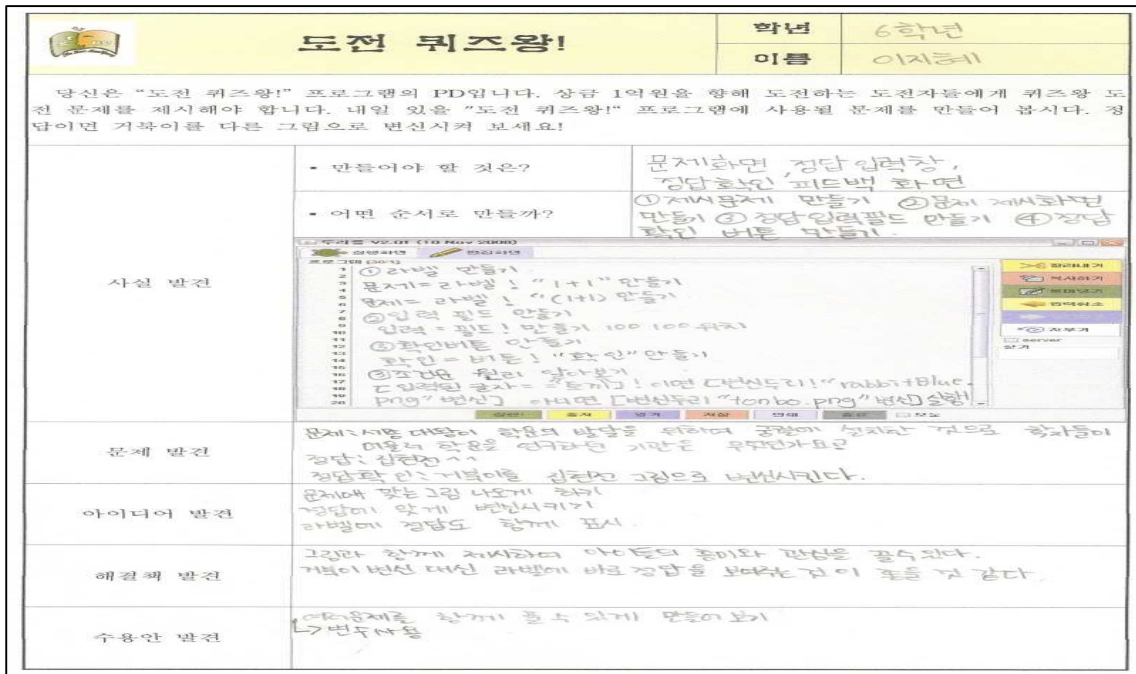 도전 퀴즈왕!
학년
6학년
이름
이지혜
당신은 "도전 퀴즈왕!" 프로그램의 PD입니다. 상금 1억원을 향해 도전하는 도전자들에게 퀴즈왕 도
전 문제를 제시해야 합니다. 내일 있을 "도전 퀴즈왕!" 프로그램에 사용될 문제를 만들어 봅시다. 정
답이면 거북이를 다른 그림으로 변신시켜 보세요!
사실 발견
• 만들어야 할 것은?
문제화면, 정답 입력창,
정답확인, 피드백 화면
• 어떤 순서로 만들까?
①제시문제 만들기 ②문제 제시화면
만들기 ③ 정답입력필드 만들기 ④정답
확인 버튼 만들기.
두리틀 V2.01 (10 Nov 2008)
실행화면
편집화면
프로그램 [30/1]
①라벨 만들기
문제=라벨! "1+1" 만들기
문제= 라벨! "(1+1) 만들기
②입력 필드 만들기
입력 = 필드! 만들기 100 100 위치
③확인버튼 만들기
확인= 버튼! "확인" 만들기
③조건문 원리 알아보기
[입력된 글자= "토끼"]! 이면 [변신두리! "rabbitBlue.
png" 변신] 아니면 [변신두리 "tonbo.png" 변신] 실행
잘라내기
복사하기
붙여넣기
입력취소
지우기
server
문제 발견
문제: 세종 대왕이 학문의 발달을 위하여 궁궐에 설치한 것으로 학자들이
학문을 연구하던 기관은 무엇인가요?
정답: 집현전^^
정답확인: 거북이를 집현전 그림으로 변신시킨다.
아이디어 발견
문제에 맞는 그림 나오게 하기
정답에 맞게 변신시키기
라벨에 정답도 함께 표시
해결책 발견
그림과 함께 제시하여 아이들의 흥미와 관심을 끌수 있다.
거북이 변신 대신 라벨에 바로 정답을 보여주는 것이 좋을 것 같다.
수용안 발견
여러문제를 함께 풀 수 있게 만들어 보기
↳변수사용